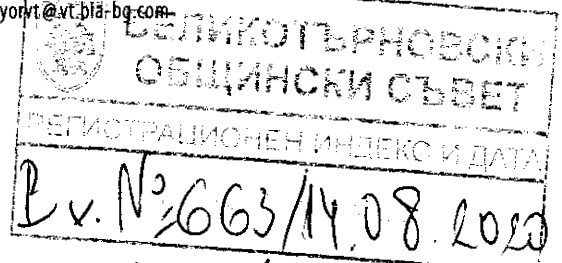 yorvt@vt.bia-bg.com
ВЕЛИКОТЪРНОВСКИ
ОБЩИНСКИ СЪВЕТ
РЕГИСТРАЦИОНЕН ИНДЕКС И ДАТА
Вх. №663/14.08.2020